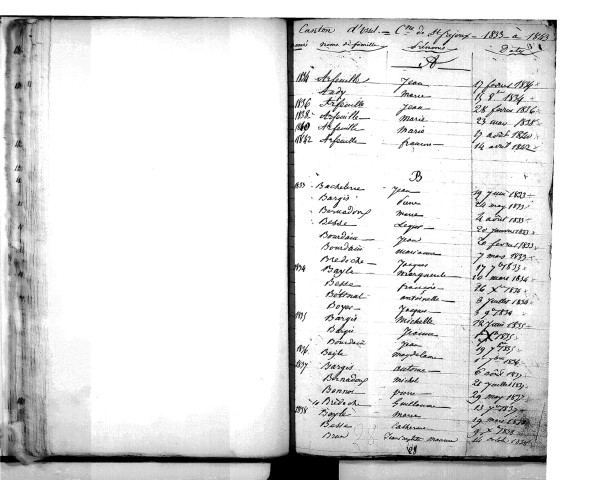 Canton d'Ussel = Cne de St Dejoux = 1833 à 1843
Noms de famille Prénoms Dates
A
1834 Arfeuille Jean 17 fevrer 1834
Andy Marie 15 8e 1834
1836 Arfeuille Jean 28 fevrer 1836
1838 Arfeuille Marie 23 mars 1838
1840 Arfeuille Marie 17 août 1840
1842 Arfeuille francois 14 avril 1842
B
1833 Bachelerie Jean 19 juin 1833
Bargis Pierre 24 may 1833
Bernadoux Marie 4 août 1833
Besse Leger 20 janvier 1833
Bourdain Jean 20 fevrer 1833
Bourdain Marianne 7 mars 1833
Bredeche Jacques 17 7b 1833
1834 Bayle Marguerite 10 mars 1834
Besse françois 26 Xe 1834
antoinette 8 juillet 1834
Boyer Jacques 5 9e 1834
1835 Bargis Michelle 12 juin 1835
Bargis Jeanne 1835
Bourdain Jean 19 7b 1835
1836 Bayle Magdelaine 1836
1837 Bargis antoine 6 août 1837
Bernadoux Michel 21 juillet 1837
Bonnot pierre 29 may 1837
Bredeche Guillaume 13 1837
1838 Bayle Marie 19 mars 1838
Besse Catherine 1838
Brun Jean 1838